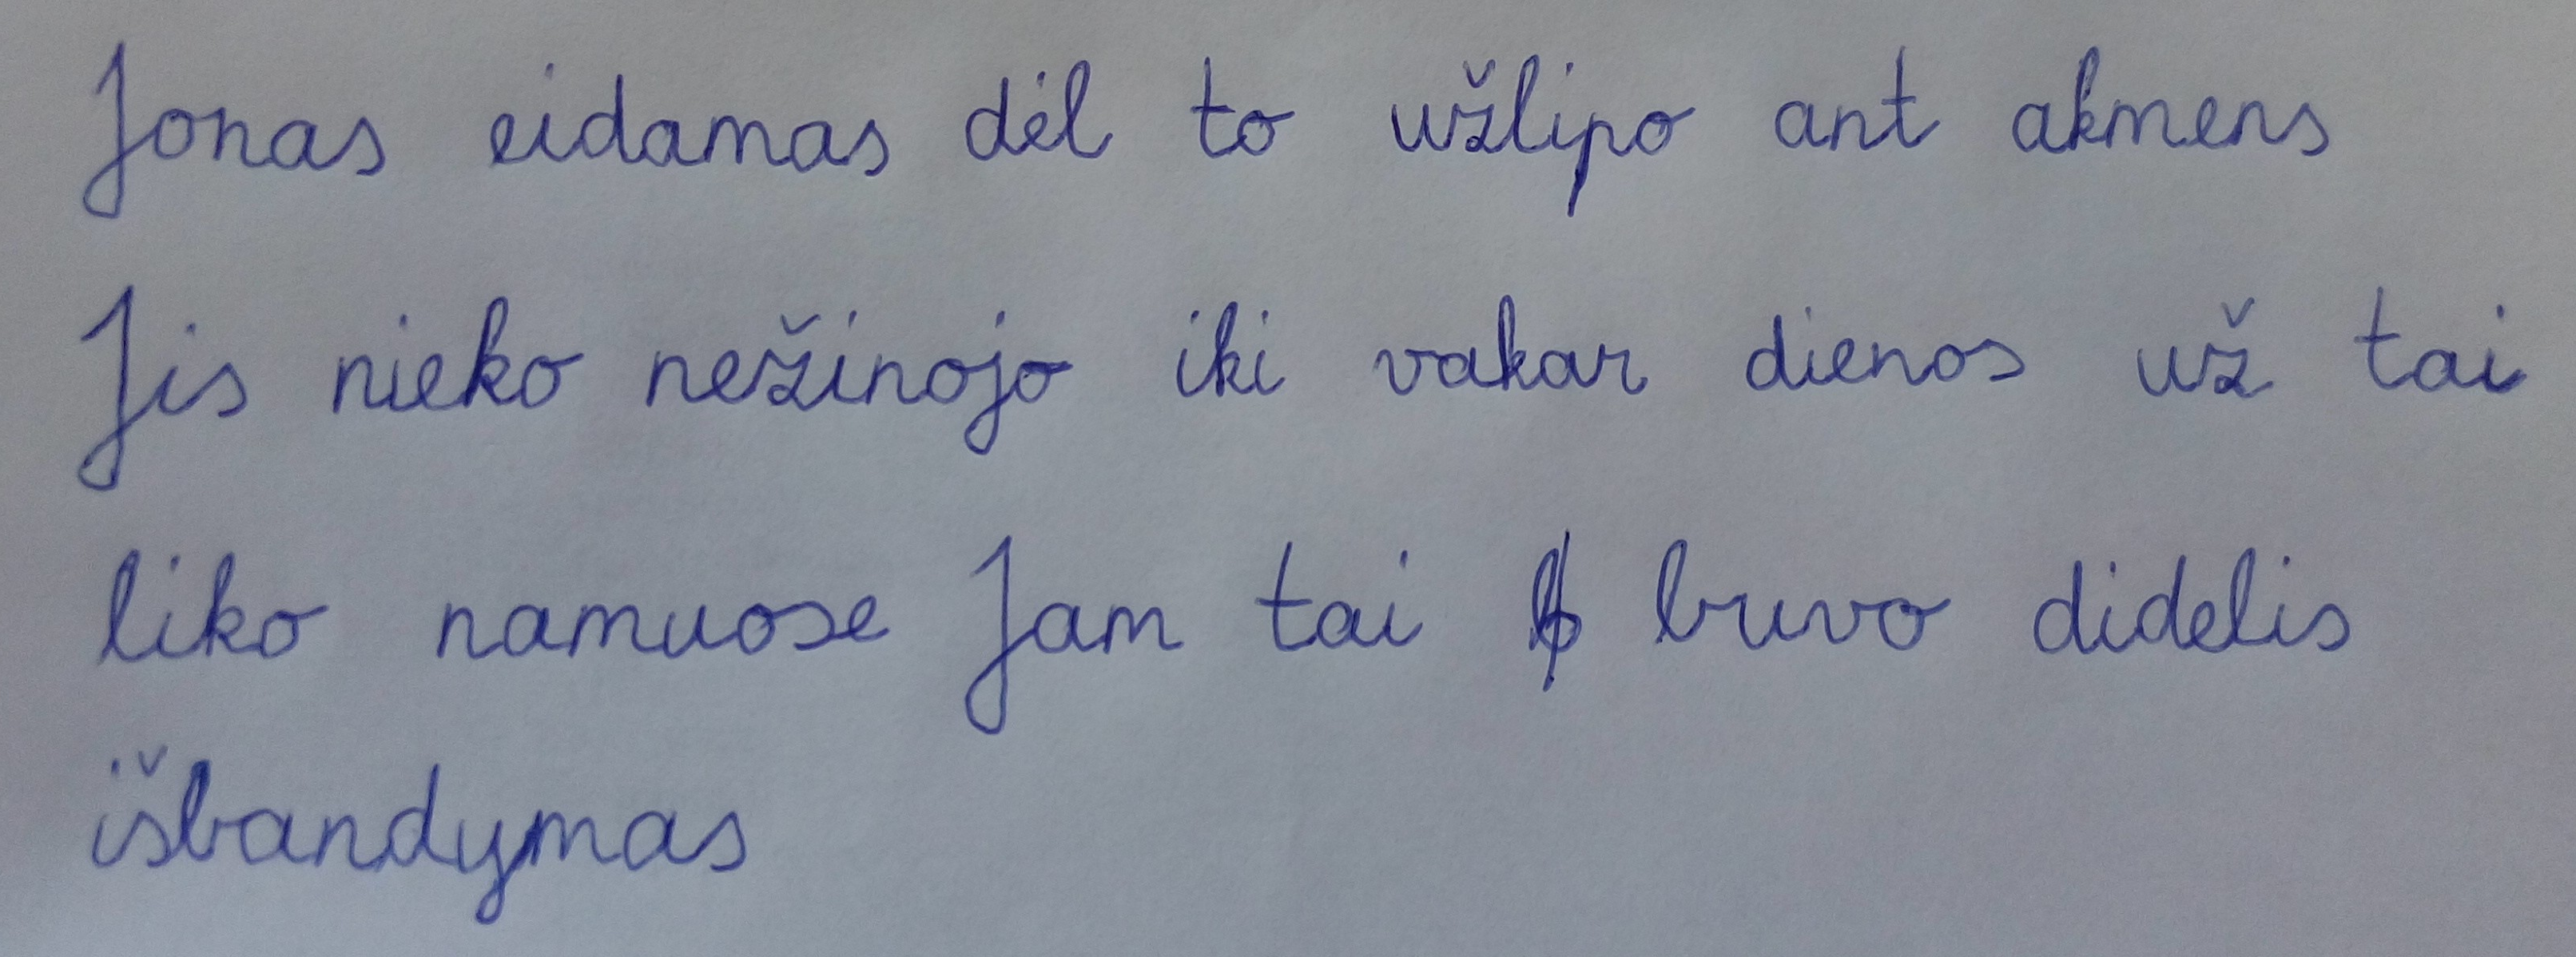 Jonas eidamas dėl to užlipo ant akmens
Jis nieko nežinojo iki vakar dienos už tai
liko namuose Jam tai buvo didelis
išbandymas